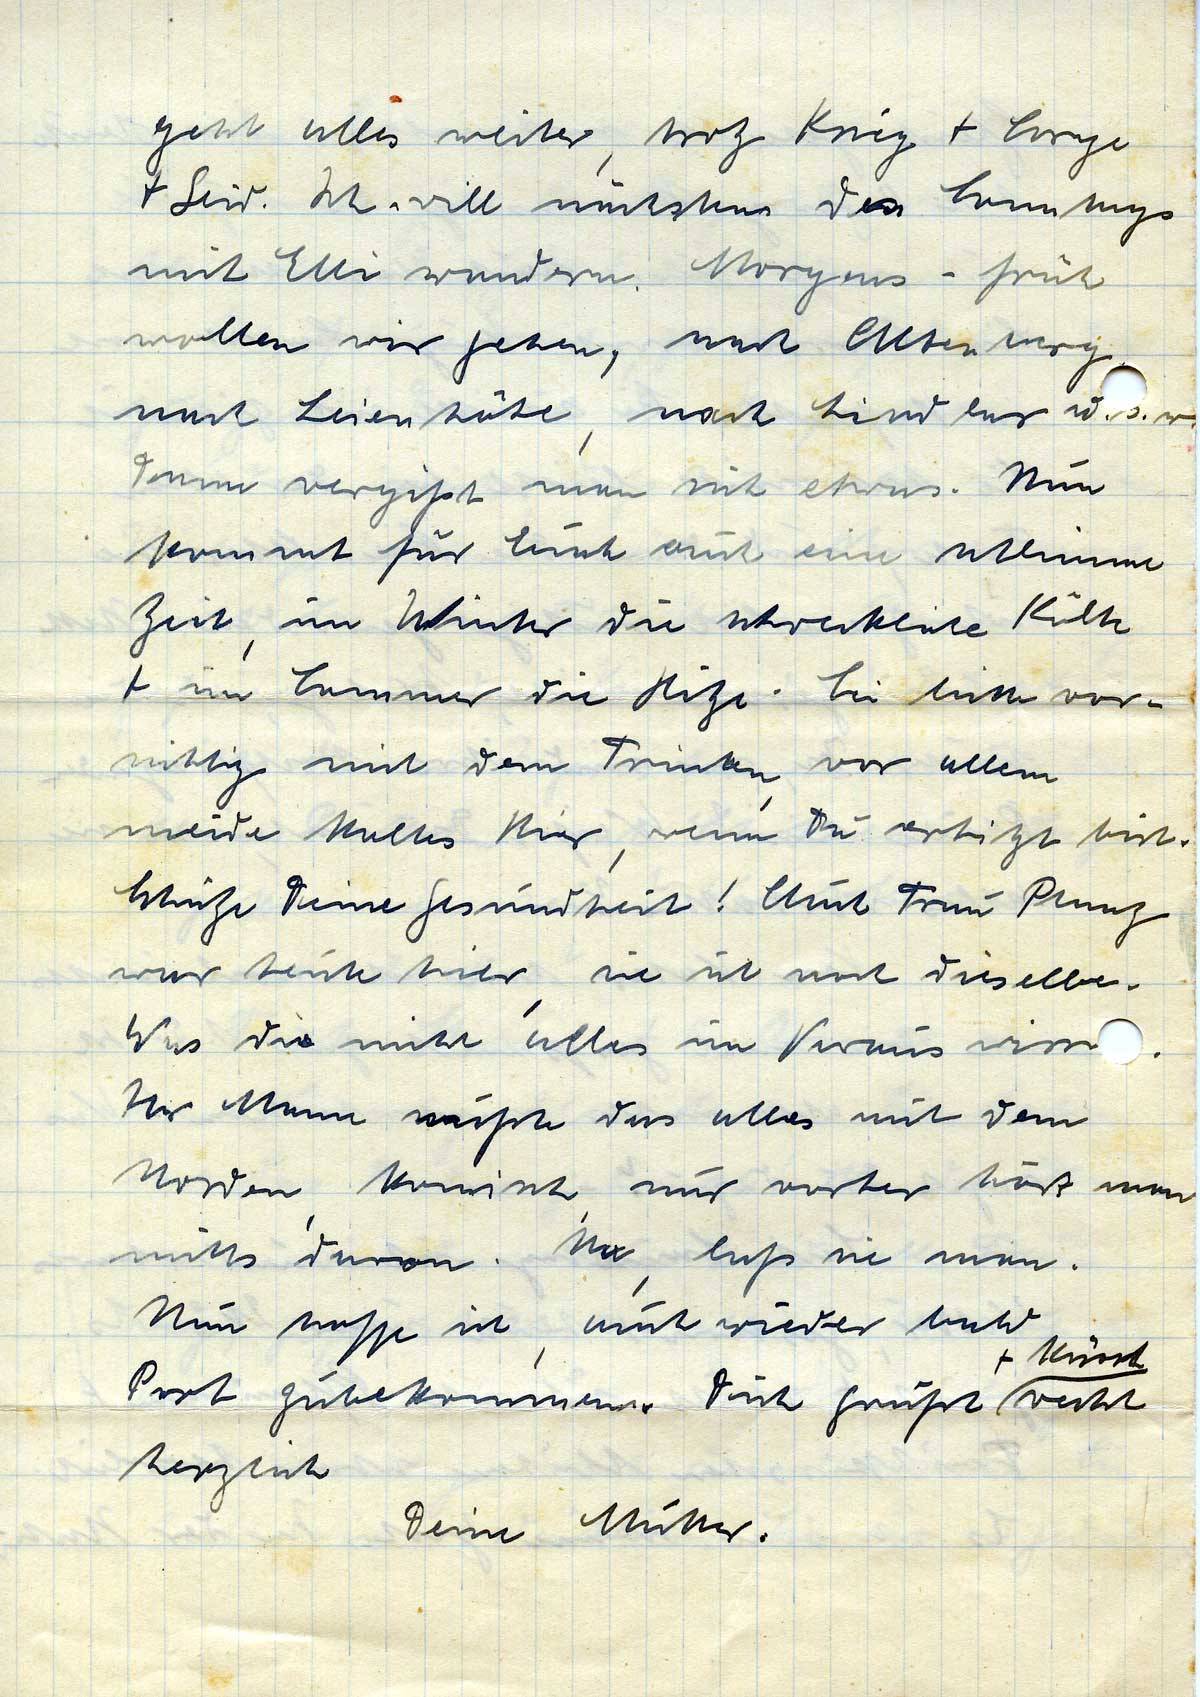 geht alles weiter, trotz Krieg + Sorge
+ Leid. Ich will nächstens des Sonntags
mit Elli wandern. Morgens - früh
wollen wir gehen, nach Altenberg,
nach Leienhöhe, nach Lindlar u.s.w.
Dann vergißt man mich etwas. Nun
kommt für Euch auch eine schlimme
Zeit, im Winter die schreckliche Kälte
+ im Sommer die Hitze. Sei bitte vor-
sichtig mit dem Trinken, vor allem
meide kaltes Bier, wenn Du erhitzt bist.
Schütze Deine Gesundheit! Auch Frau
war heute hier, sie ist noch dieselbe.
Was die nicht alles im Voraus wissen.
Ihr Mann wußte das alles mit dem
Norden, komisch, nur vorher hört man
nichts davon. Na, laß sie man.
Nun hoffe ich, auch wieder bald
Post zu bekommen. Dich grüßt + küsst recht
herzlich
Deine Mutter.